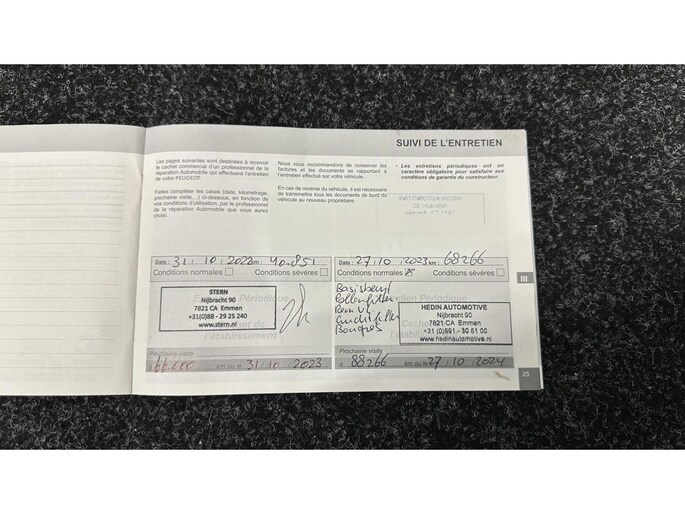 SUIVI DE L'ENTRETIEN
Les pages suivantes sont destinées à recevoir
le cachet commercial d'un professionnel de la
réparation Automobile qui effectuera l'entretien
de votre PEUGEOT.
Faites compléter les cases (date, kilométrage,
prochaine visite,...) ci-dessous, en fonction de
vos conditions d'utilisation, par le professionnel
de la réparation Automobile que vous aurez
choisi.
Nous vous recommandons de conserver les
factures et les documents se rapportant à
l'entretien effectué sur votre véhicule.
En cas de revente du véhicule, il est nécessaire
de transmettre tous les documents de bord du
véhicule au nouveau propriétaire.
• Les entretiens périodiques ont un
caractère obligatoire pour satisfaire aux
conditions de garantie du constructeur.
Date : 31 10 2022 km : 40.851
Conditions normales Conditions sévères
STERN
Nijbracht 90
7821 CA Emmen
+31(0)88 - 29 25 240
www.stern.nl
Périodique
l'établissement
Prochaine visite
à 66.000 km ou le 31 10 2023
Date : 27 10 2023 km : 68266
Conditions normales Conditions sévères
Pollenfilter
HEDIN AUTOMOTIVE
Nijbracht 90
7821 CA Emmen
+31 (0)591 - 30 61 00
www.hedinautomotive.nl
Prochaine visite
à 88266 km ou le 27 10 2024
III
25